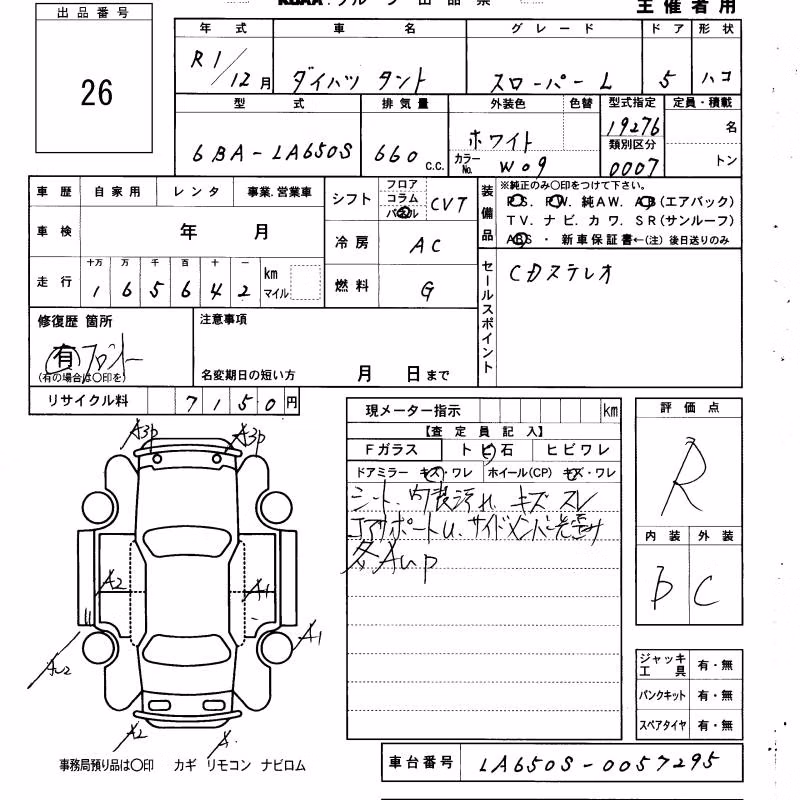 出品番号
26
主催者用
年式 車名 グレード ドア 形状
R1/12月 ダイハツ タント スローパーL 5 ハコ
型式 排気量 外装色 色替 型式指定 定員・積載
6BA-LA650S 660 C.C. ホワイト 19276 名
カラーNo. W09 類別区分 0007 トン
車歴 自家用 レンタ 事業.営業車
シフト フロア コラム パネル CVT
装備品 ※純正のみ〇印をつけて下さい。
P.S. P.W. 純AW. AB(エアバック)
TV. ナビ. カワ. SR(サンルーフ)
ABS ・ 新車保証書←(注) 後日送りのみ
車検 年 月
冷房 AC
走行 十万 万 千 百 十 一 km マイル
1 6 5 6 4 2
燃料 G
セールスポイント CDステレオ
修復歴 箇所
有 フロント
(有の場合は〇印を)
注意事項
名変期日の短い方 月 日まで
リサイクル料 7150円
現メーター指示 km
【査定員記入】
Fガラス トビ石 ヒビワレ
ドアミラー キズ・ワレ ホイール(CP) キズ・ワレ
シート、内装汚れ キズ スレ
コアサポートU、サイドメンバー先歪み
各AUP
評価点
R
内装 外装
D C
A3P A3P
A2 A1
AU2 A1
A2 A
ジャッキ工具 有・無
パンクキット 有・無
スペアタイヤ 有・無
事務局預り品は〇印 カギ リモコン ナビロム
車台番号 LA650S-0057295